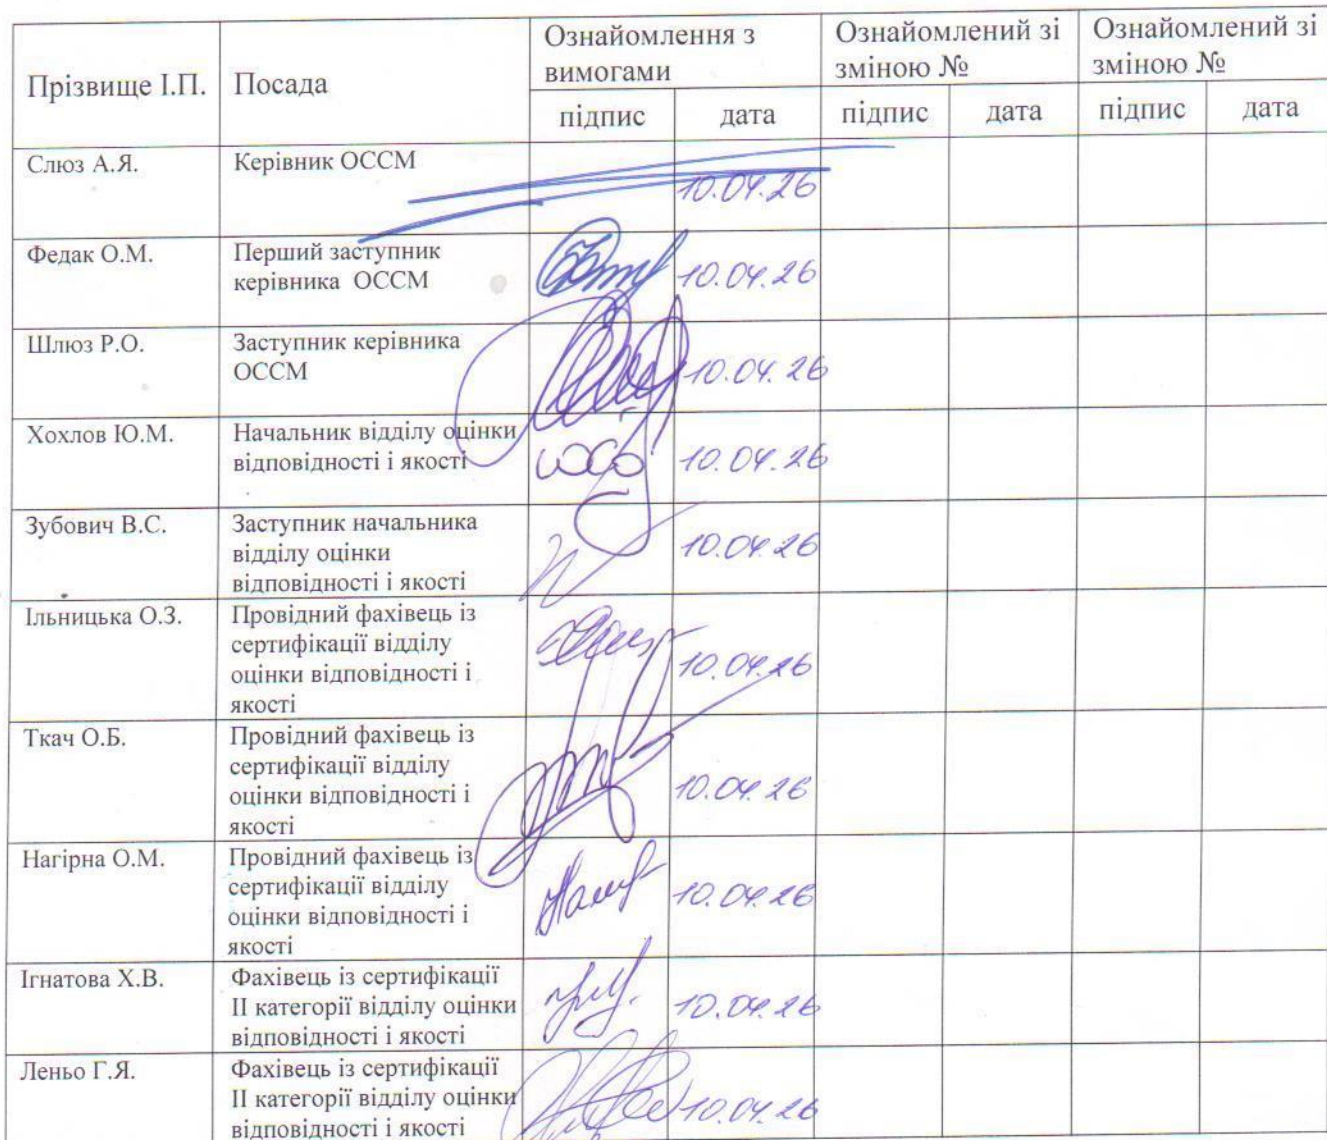 Прізвище І.П.
Посада
Ознайомлення з
вимогами
Ознайомлений зі
зміною №
Ознайомлений зі
зміною №
підпис
дата
підпис
дата
підпис
дата
Слюз А.Я.
Керівник ОССМ
10.04.26
Федак О.М.
Перший заступник
керівника ОССМ
10.04.26
Шлюз Р.О.
Заступник керівника
ОССМ
10.04.26
Хохлов Ю.М.
Начальник відділу оцінки
відповідності і якості
10.04.26
Зубович В.С.
Заступник начальника
відділу оцінки
відповідності і якості
10.04.26
Ільницька О.З.
Провідний фахівець із
сертифікації відділу
оцінки відповідності і
якості
10.04.26
Ткач О.Б.
Провідний фахівець із
сертифікації відділу
оцінки відповідності і
якості
10.04.26
Нагірна О.М.
Провідний фахівець із
сертифікації відділу
оцінки відповідності і
якості
10.04.26
Ігнатова Х.В.
Фахівець із сертифікації
ІІ категорії відділу оцінки
відповідності і якості
10.04.26
Леньо Г.Я.
Фахівець із сертифікації
ІІ категорії відділу оцінки
відповідності і якості
10.04.26